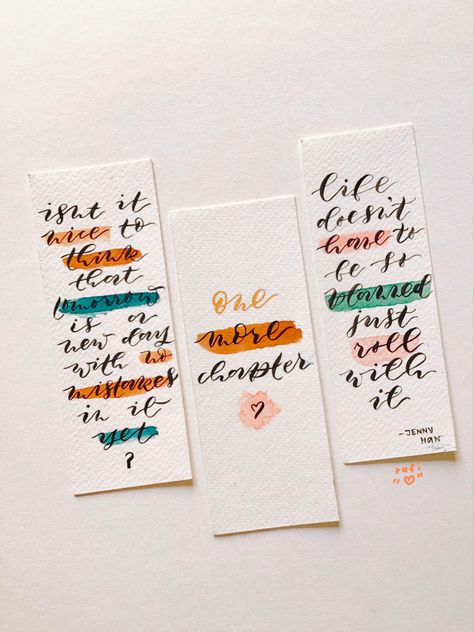 isnt it
nice to
think
that
tomorrow
is a
new day
with no
mistakes
in it
yet
?
one
more
chapter
life
doesn't
have to
be so
planned
just
roll
with
it
-JENNY
HAN
rufi
"♡"